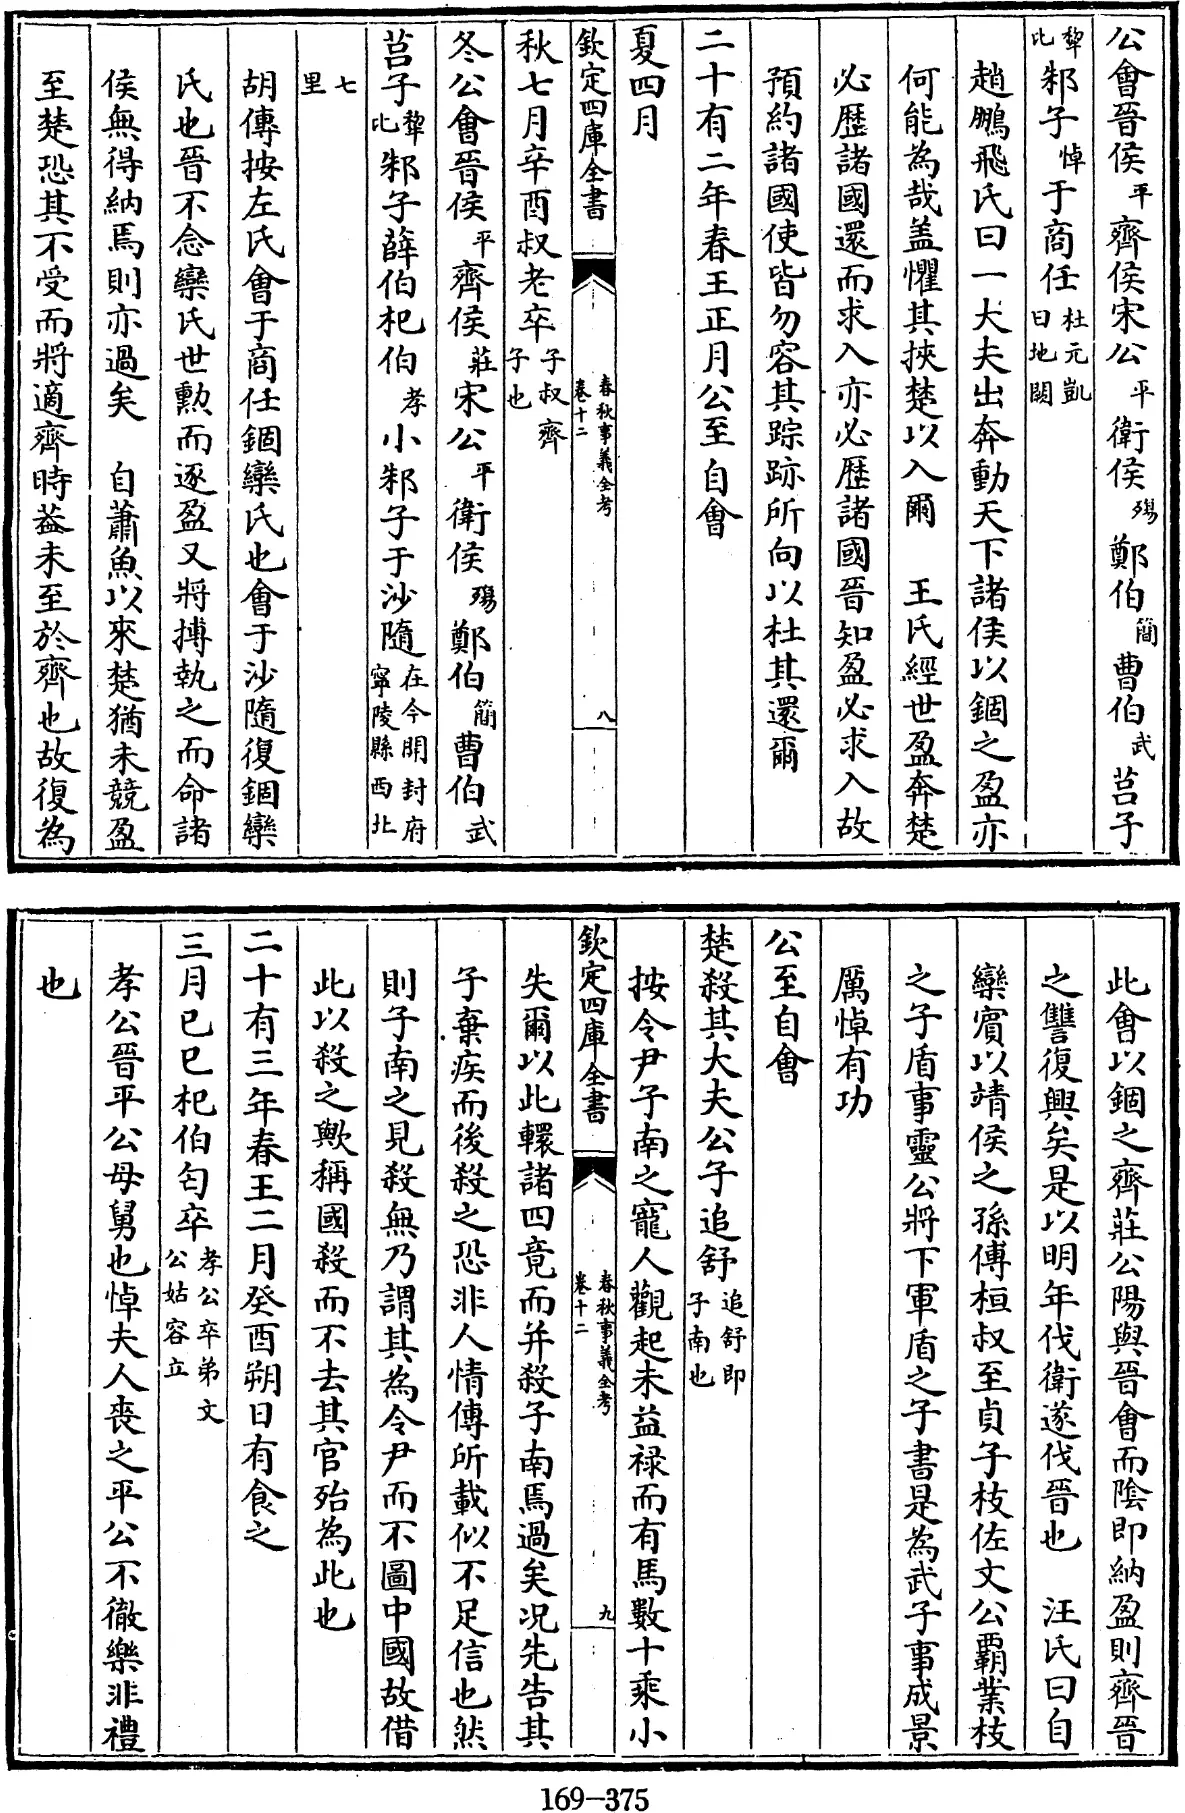 公會晉侯平齊侯宋公平衛侯殤鄭伯簡曹伯武莒子
犂比邾子悼于商任杜元凱曰地闕
趙鵬飛氏曰一大夫出奔動天下諸侯以錮之盈亦
何能為哉盖懼其挾楚以入爾　王氏經世盈奔楚
必歷諸國還而求入亦必歷諸國晉知盈必求入故
預約諸國使皆勿容其踪跡所向以杜其還爾
二十有二年春王正月公至自會
夏四月
欽定四庫全書　春秋事義全考卷十二　八
秋七月辛酉叔老卒子叔齊子也
冬公會晉侯平齊侯莊宋公平衛侯殤鄭伯簡曹伯武
莒子犂比邾子薛伯杞伯孝小邾子于沙隨在今開封府寧陵縣西北
七里
胡傳按左氏會于商任錮欒氏也會于沙隨復錮欒
氏也晉不念欒氏世勲而逐盈又將搏執之而命諸
侯無得納焉則亦過矣　自蕭魚以來楚猶未競盈
至楚恐其不受而將適齊時葢未至於齊也故復為
此會以錮之齊莊公陽與晉會而陰即納盈則齊晉
之讐復興矣是以明年伐衛遂伐晉也　汪氏曰自
欒賓以靖侯之孫傅桓叔至貞子枝佐文公霸業枝
之子盾事靈公將下軍盾之子書是為武子事成景
厲悼有功
公至自會
楚殺其大夫公子追舒追舒即子南也
按令尹子南之寵人觀起未益禄而有馬數十乘小
欽定四庫全書　春秋事義全考卷十二　九
失爾以此轘諸四竟而并殺子南焉過矣况先告其
子棄疾而後殺之恐非人情傳所載似不足信也然
則子南之見殺無乃謂其為令尹而不圖中國故借
此以殺之歟稱國殺而不去其官殆為此也
二十有三年春王二月癸酉朔日有食之
三月己巳杞伯匄卒孝公卒弟文公姑容立
孝公晉平公母舅也悼夫人喪之平公不徹樂非禮
也
169-375